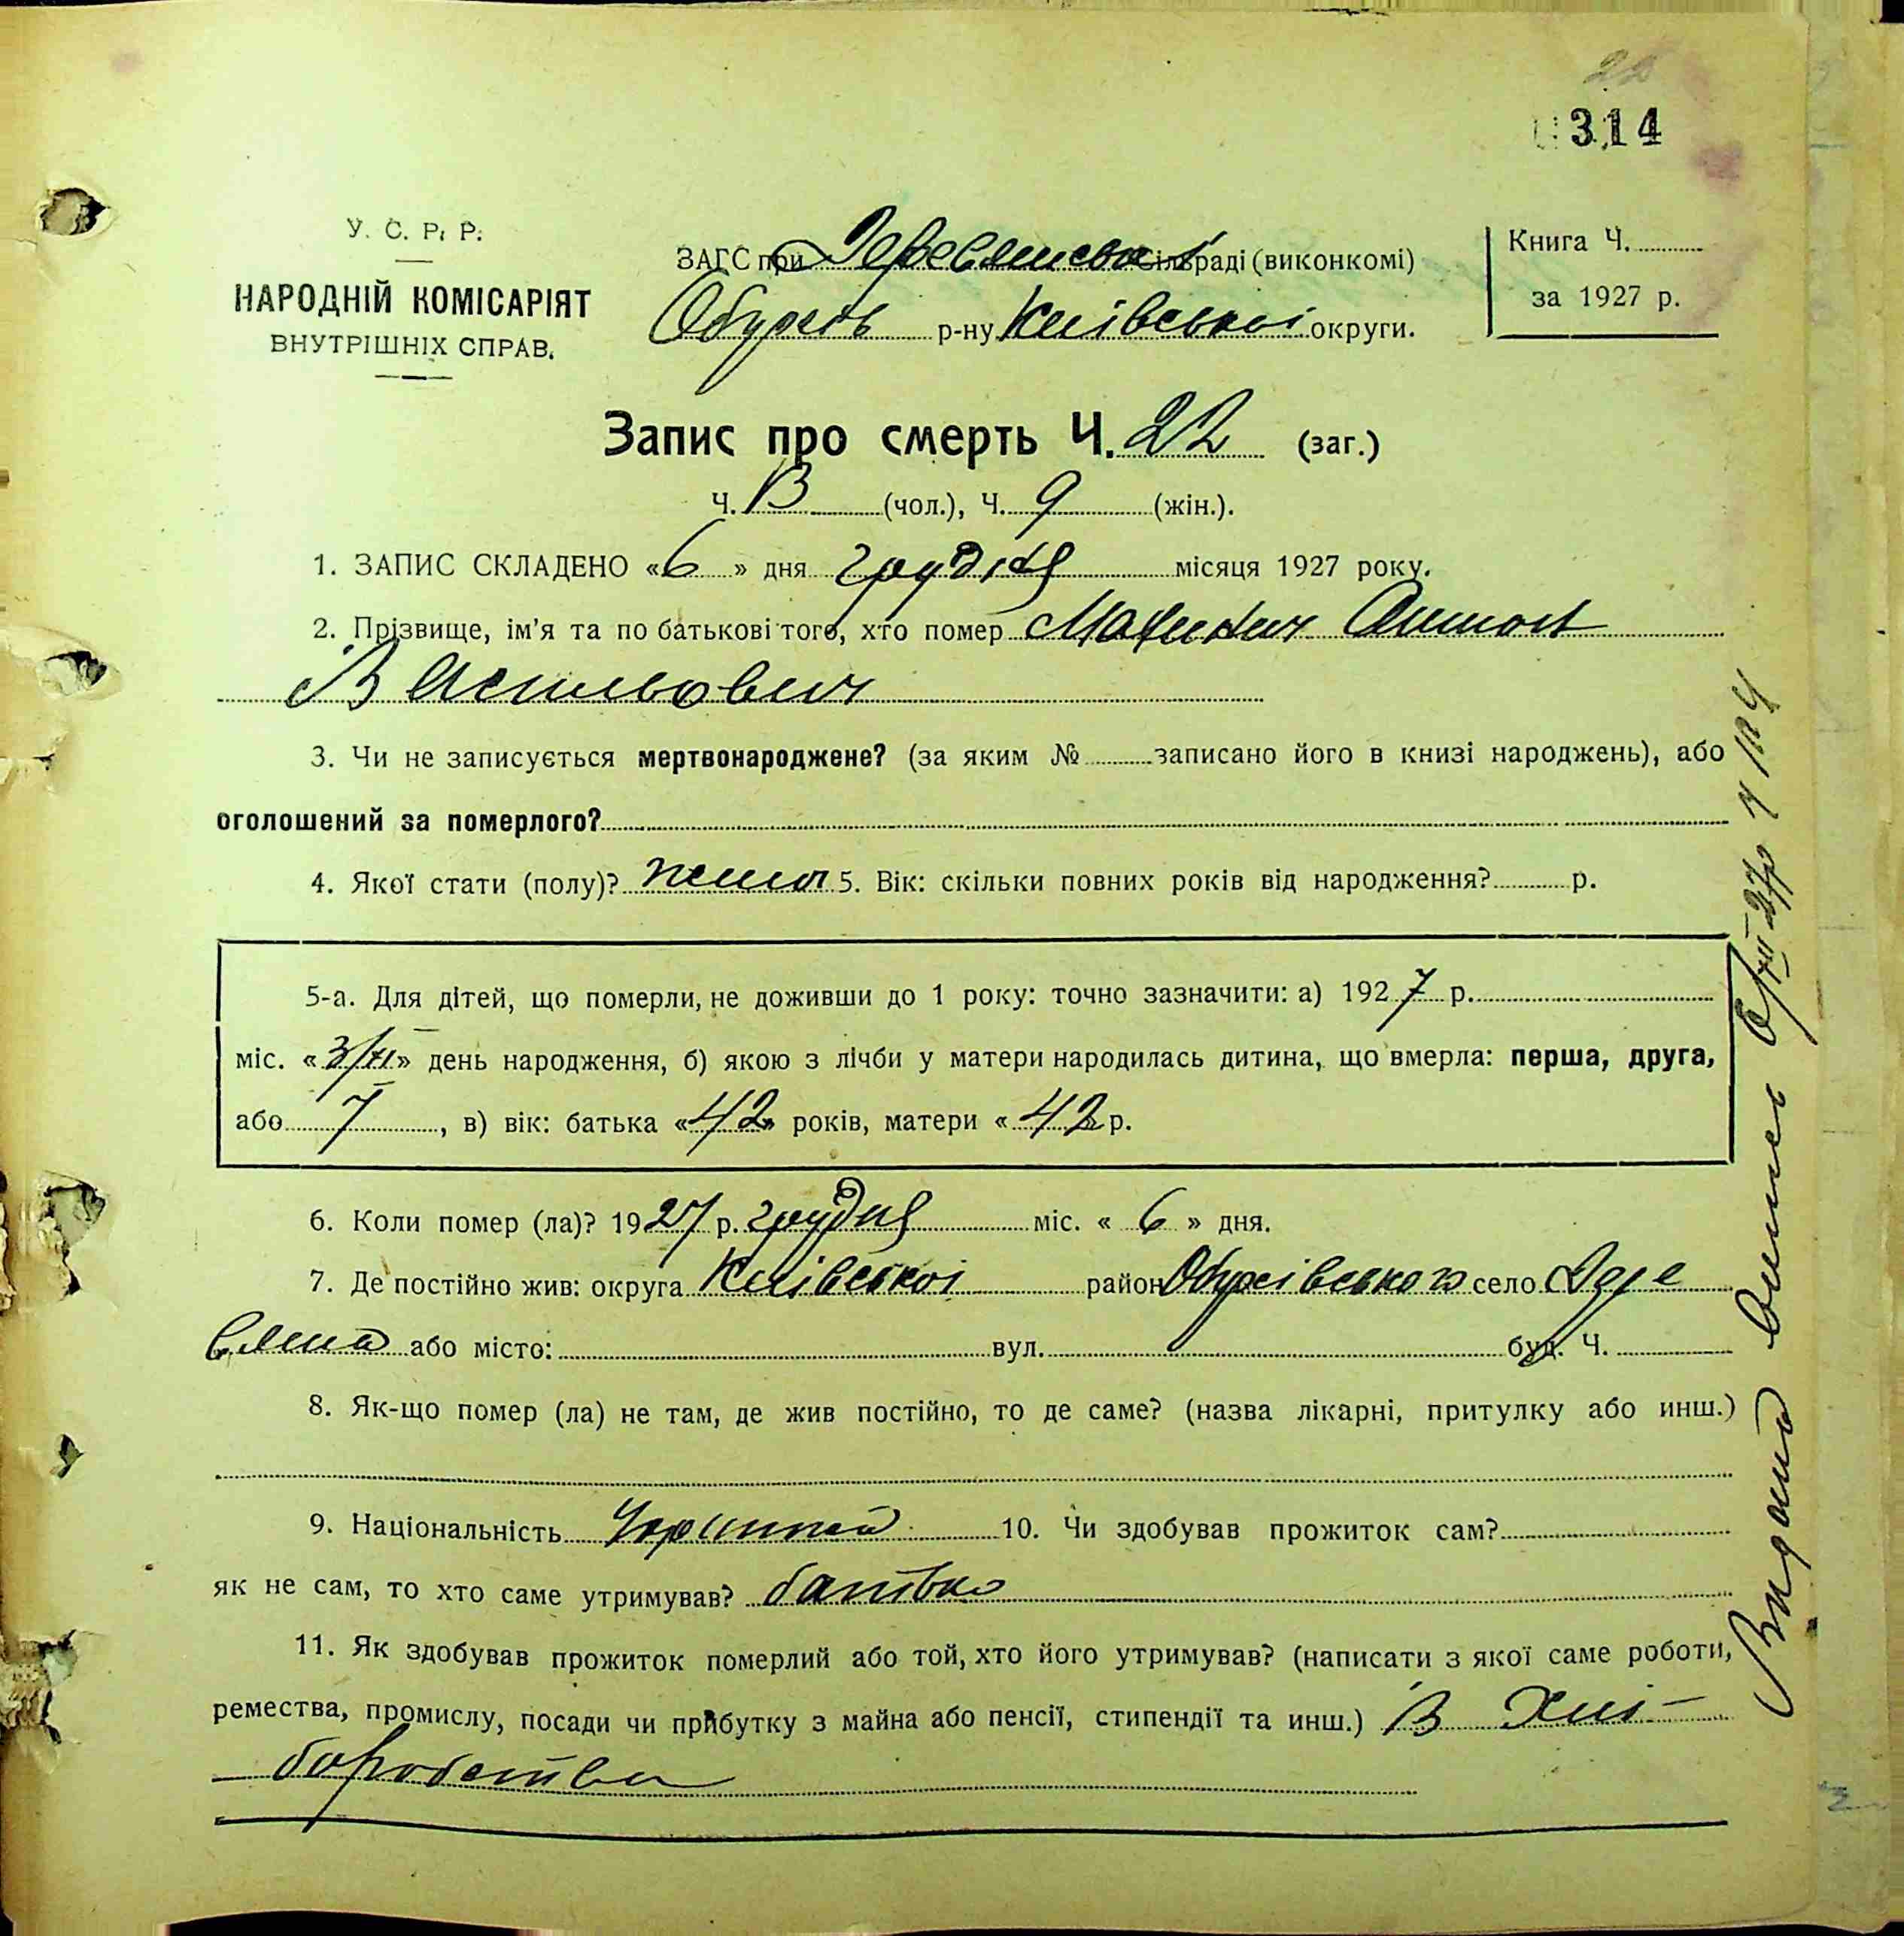 22
314
У. С. Р. Р.
НАРОДНІЙ КОМІСАРІЯТ
ВНУТРІШНІХ СПРАВ.
ЗАГС при Деревянській Сільраді (виконкомі)
Обухів р-ну Київської округи.
Книга Ч.
за 1927 р.
Запис про смерть Ч. 22 (заг.)
Ч. 13 (чол.), Ч. 9 (жін.).
1. ЗАПИС СКЛАДЕНО «6» дня грудня місяця 1927 року.
2. Прізвище, ім'я та по батькові того, хто помер Антон
Васильович
3. Чи не записується мертвонароджене? (за яким № записано його в книзі народжень), або
оголошений за померлого?
4. Якої стати (полу)? 5. Вік: скільки повних років від народження? р.
5-а. Для дітей, що померли, не доживши до 1 року: точно зазначити: а) 1927 р.
міс. «3/XI» день народження, б) якою з лічби у матери народилась дитина, що вмерла: перша, друга,
або 7, в) вік: батька «42» років, матери «42 р.
6. Коли помер (ла)? 1927 р. грудня міс. «6» дня.
7. Де постійно жив: округа Київської район Обухівського село Дере
вяна або місто: вул. буд. Ч.
8. Як-що помер (ла) не там, де жив постійно, то де саме? (назва лікарні, притулку або инш.)
9. Національність 10. Чи здобував прожиток сам?
як не сам, то хто саме утримував? батько
11. Як здобував прожиток померлий або той, хто його утримував? (написати з якої саме роботи,
ремества, промислу, посади чи прибутку з майна або пенсії, стипендії та инш.) В Хлі-
боробстві
Видано випись 6/XII-27р